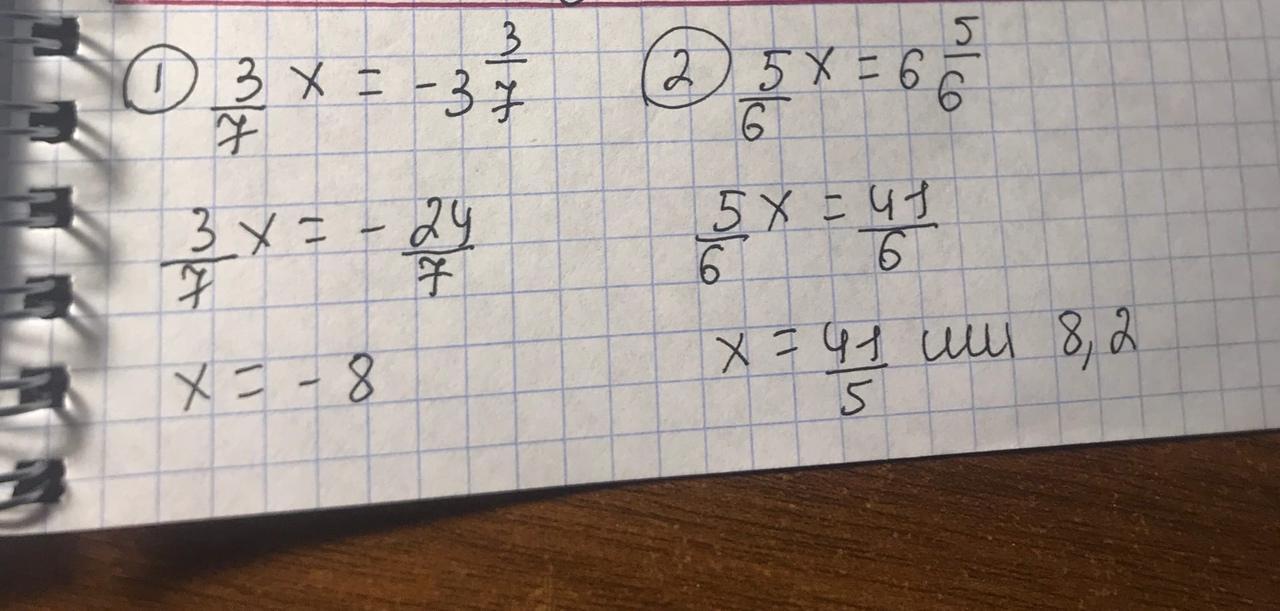 ① 3/7 x = -3 3/7
3/7 x = - 24/7
x = - 8
② 5/6 x = 6 5/6
5/6 x = 41/6
x = 41/5 или 8,2